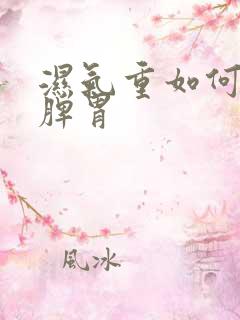 濕氣重如何
脾胃
風冰